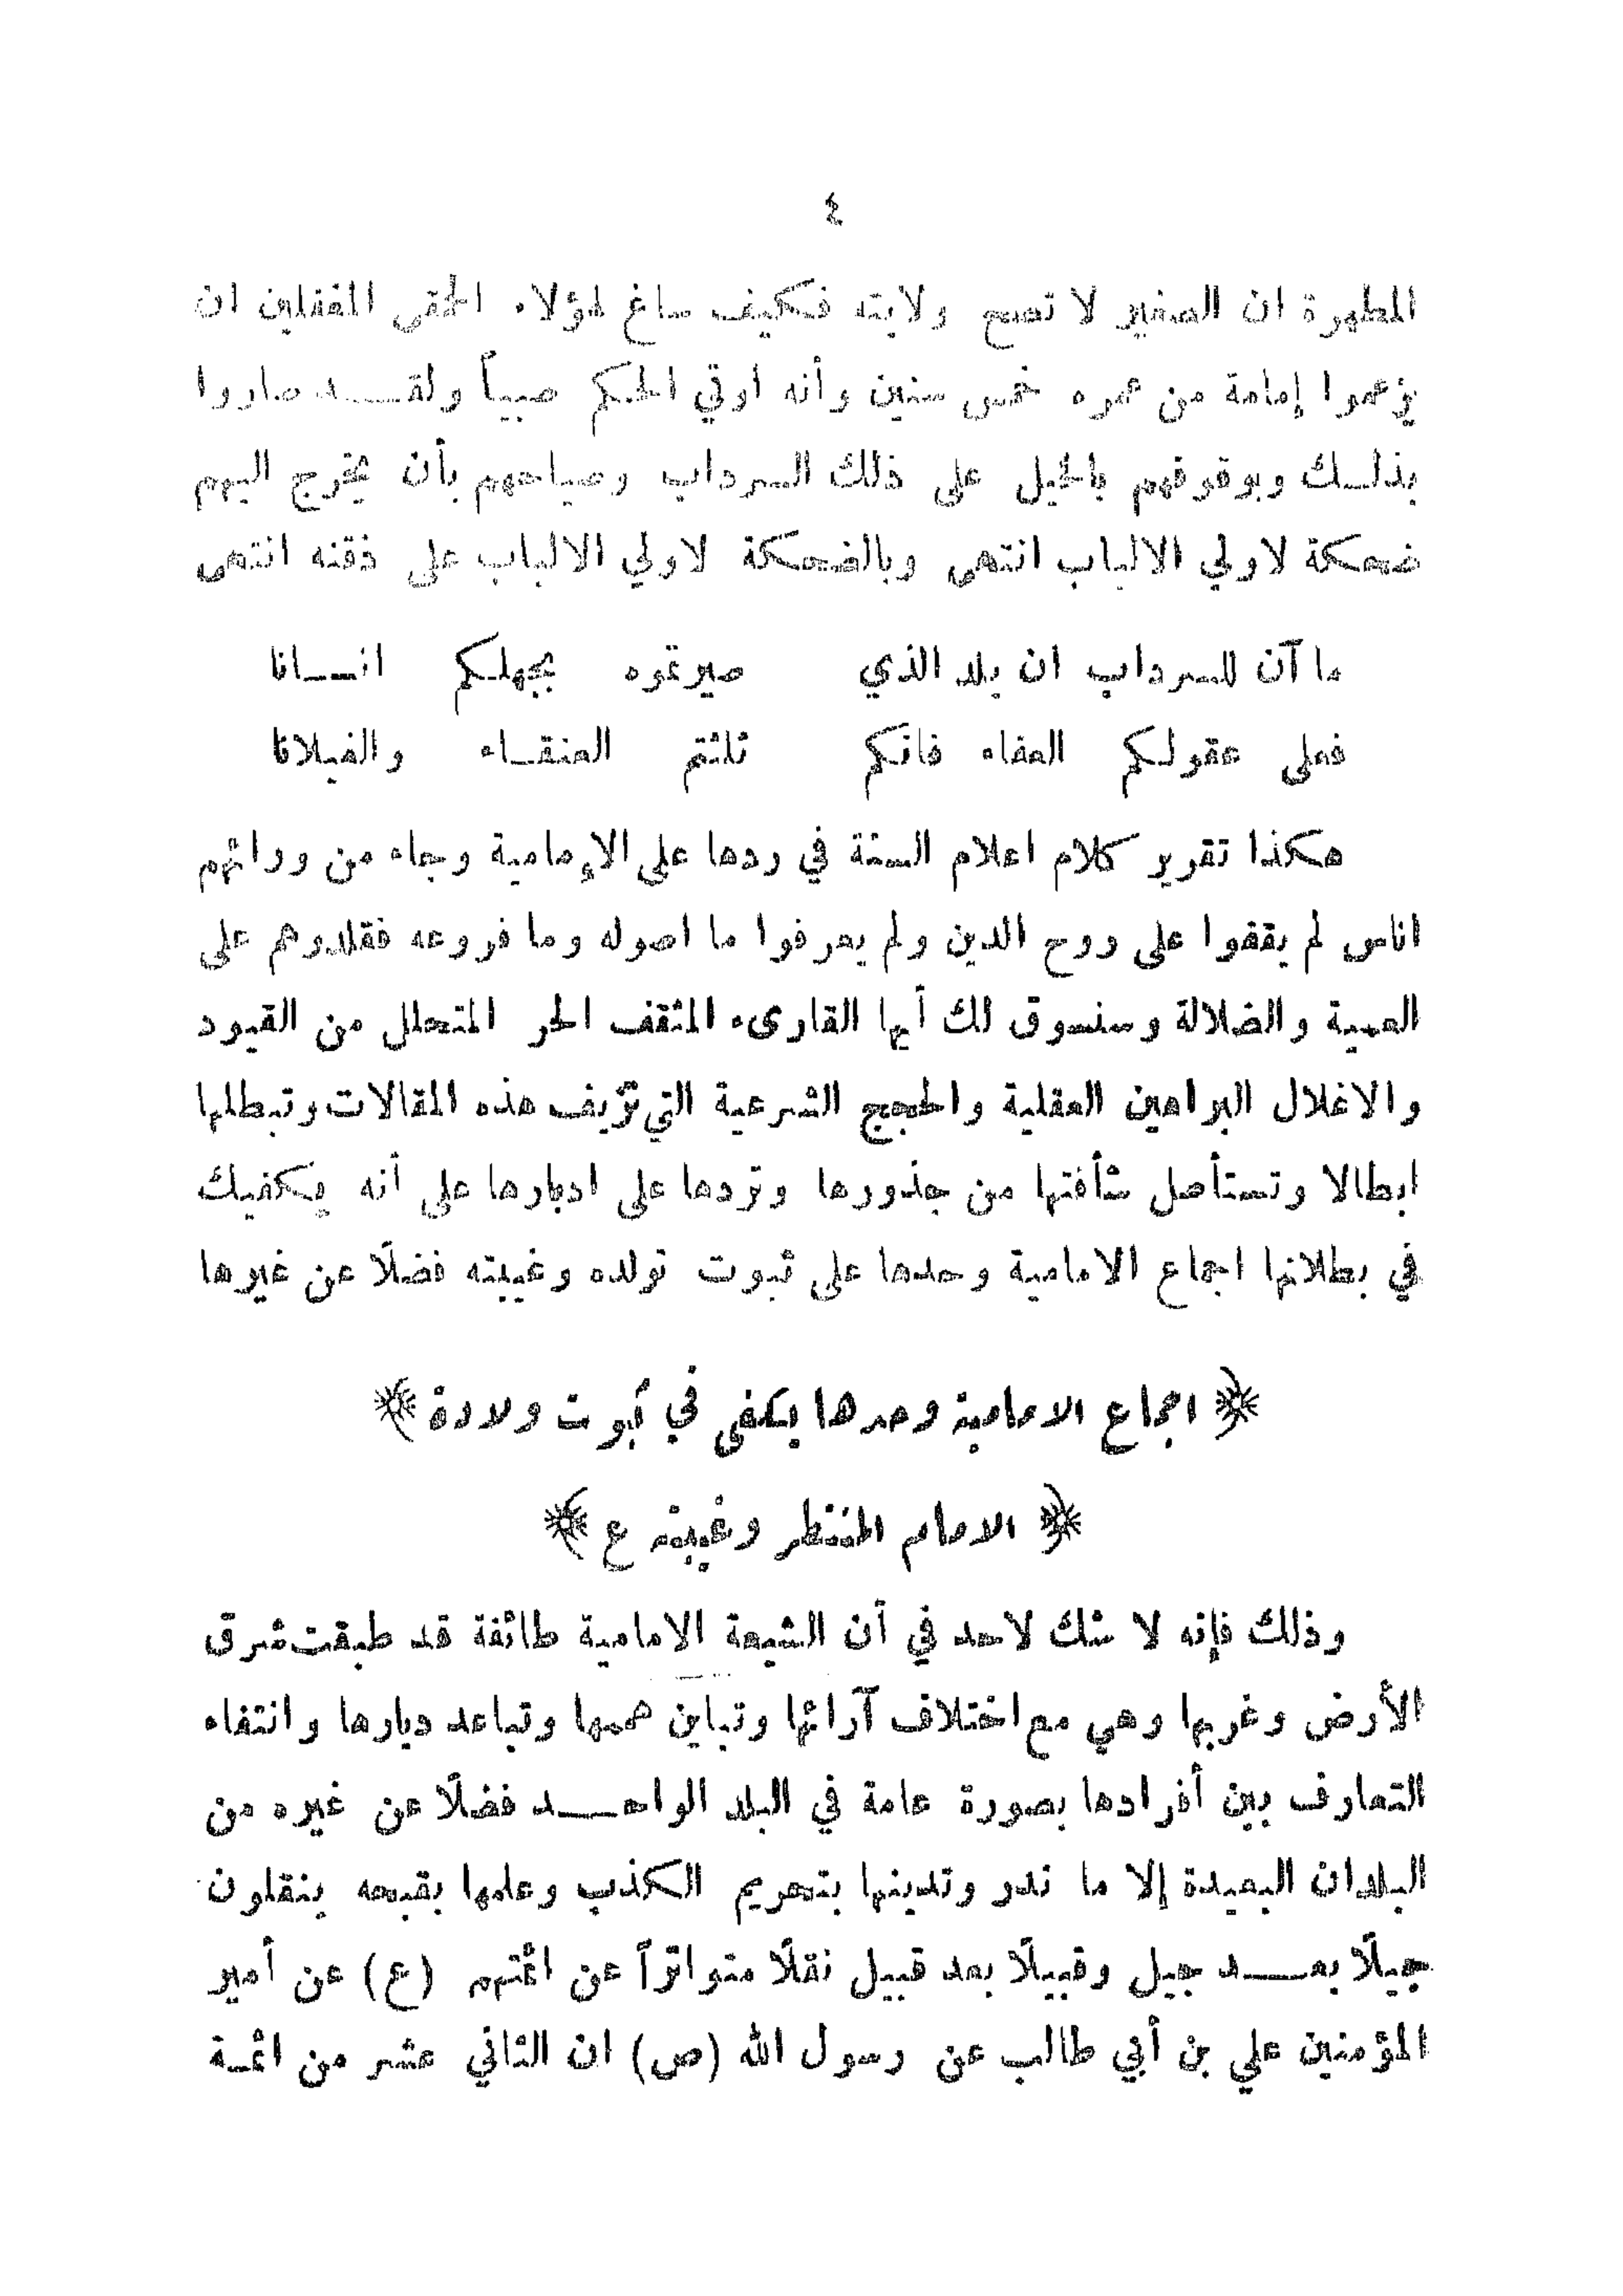 ٤
المطهرة ان الصغير لا تصح ولايته فكيف ساغ لهؤلاء الحمقى المغفلين ان
يزعموا إمامة من عمره خمس سنين وأنه اوتي الحكم صبياً ولقــد صاروا
بذلـك وبوقوفهم بالخيل على ذلك السرداب وصياحهم بأن يخرج اليهم
ضحكة لاولي الالباب انتهى وبالضحكة لاولي الالباب على ذقنه انتهى
ما آن للسرداب ان يلد الذي صيرتموه بجهلـكم انـسـانا
فعلى عقولـكم العفاء فانكم ثلثتم العنقـاء والغيلانا
هكذا تقرير كلام اعلام السنة في ردها على الإمامية وجاء من ورائهم
اناس لم يقفوا على روح الدين ولم يعرفوا ما اصوله وما فروعه فقلدوهم على
العمية والضلالة وسنسوق لك أيها القارىء المثقف الحر المتحلل من القيود
والاغلال البراهين العقلية والحجج الشرعية التي تزيف هذه المقالات وتبطلها
ابطالا وتستأصل شأفتها من جذورها وتردها على ادبارها على أنه يكفيك
في بطلانها اجماع الامامية وحدها على ثبوت تولده وغيبته فضلًا عن غيرها
﴿ اجماع الامامية وحدها يكفي في ثبوت ولادة ﴾
﴿ الامام المنتظر وغيبته ع ﴾
وذلك فإنه لا شك لاحد في أن الشيعة الامامية طائفة قد طبقت شرق
الأرض وغربها وهي مع اختلاف آرائها وتباين هممها وتباعد ديارها وانتفاء
التعارف بين أفرادها بصورة عامة في البلد الواحــد فضلًا عن غيره من
البلدان البعيدة إلا ما ندر وتدينها بتحريم الكذب وعلمها بقبحه ينقلون
جيلًا بعــد جيل وقبيلًا بعد قبيل نقلًا متواتراً عن ائمتهم (ع) عن أمير
المؤمنين علي بن أبي طالب عن رسول الله (ص) ان الثاني عشر من ائمـة